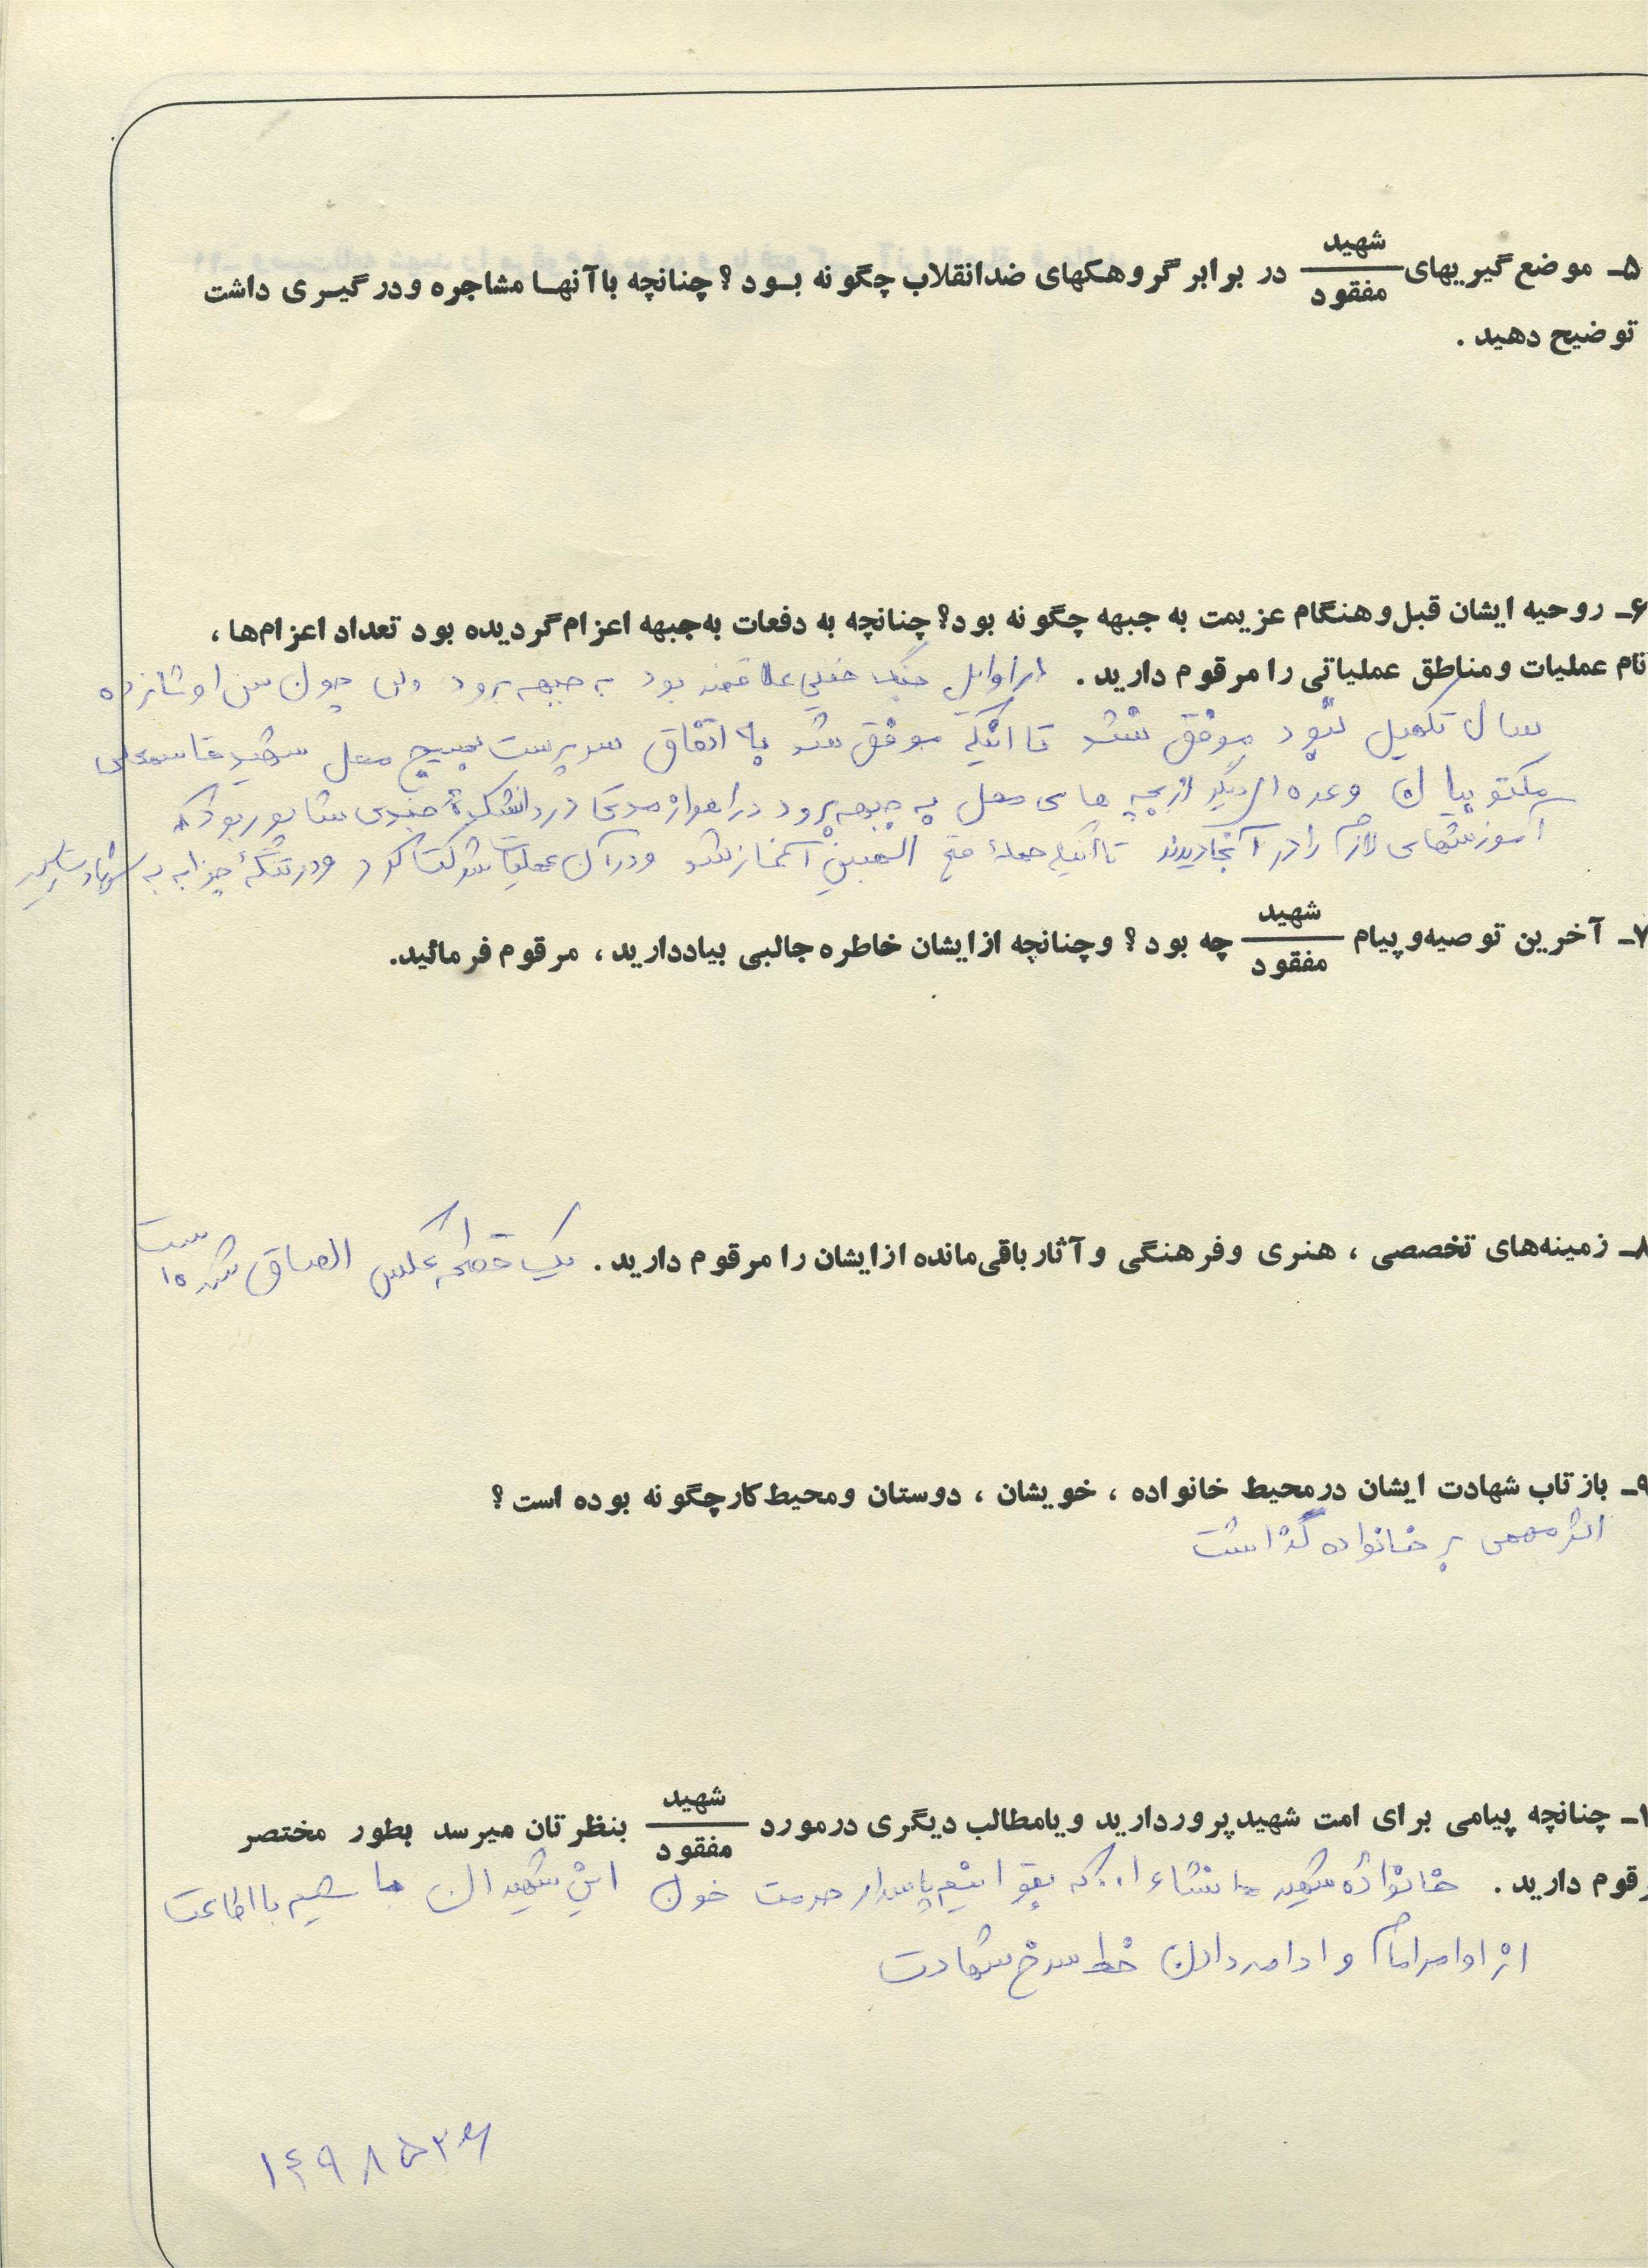 ۵ـ موضع گیریهای شهید / مفقود در برابر گروهکهای ضدانقلاب چگونه بود ؟ چنانچه باآنها مشاجره ودرگیری داشت
توضیح دهید .
۶ـ روحیه ایشان قبل‌وهنگام عزیمت به جبهه چگونه بود؟ چنانچه به دفعات به‌جبهه اعزام‌گردیده بود تعداد اعزام‌ها ،
نام عملیات ومناطق عملیاتی را مرقوم دارید . از اوایل جنگ خیلی علاقمند بود به جبهه برود ولی چون سن او شانزده
سال تکمیل نبود موفق نشد تا اینکه موفق شد به اتفاق سرپرست بسیج محل شهید
و عده ای دیگر از بچه های محل به جبهه برود در اهواز مدتی در دانشکدهٔ جندی شاپور بود که
آموزشهای لازم را در آنجا دیدند تا اینکه حملهٔ فتح المبین آغاز شد ودر آن عملیات شرکت کرد ودر تنگهٔ چزابه به شهادت رسید
۷ـ آخرین توصیه‌وپیام شهید / مفقود چه بود ؟ وچنانچه ازایشان خاطره جالبی بیاددارید ، مرقوم فرمائید.
۸ـ زمینه‌های تخصصی ، هنری وفرهنگی وآثارباقی‌مانده ازایشان را مرقوم دارید . یک قطعه عکس الصاق شده است
۹ـ بازتاب شهادت ایشان درمحیط خانواده ، خویشان ، دوستان ومحیط‌کارچگونه بوده است ؟
اثر مهمی بر خانواده گذاشت
۱ـ چنانچه پیامی برای امت شهیدپروردارید ویامطالب دیگری درمورد شهید / مفقود بنظرتان میرسد بطور مختصر
رقوم دارید . خانواده شهید انشاءا.. که بتوانیم پاسدار حرمت خون این شهیدان باشیم با اطاعت
از اوامر امام و ادامه دادن خط سرخ شهادت
۱۴۹۸۵۳۶